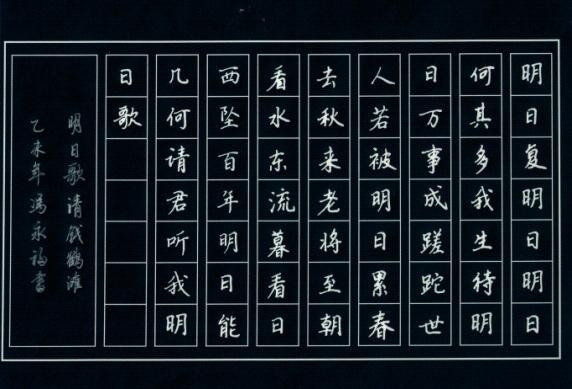 明日复明日明日
何其多我生待明
日万事成蹉跎世
人若被明日累春
去秋来老将至朝
看水东流暮看日
西坠百年明日能
几何请君听我明
日歌
明日歌清钱鹤滩
乙未年冯永福书